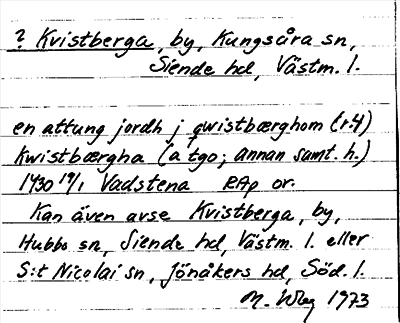 ? Kvistberga, by, Kungsåra sn,
Siende hd, Västm. l.
en attung jordh j qwistbærghom (r. 4)
Kwistbærgha (a tgo; annan samt. h.)
1430 19/1 Vadstena RAp or.
Kan även avse Kvistberga, by,
Hubbo sn, Siende hd, Västm. l. eller
S:t Nicolai sn, Jönåkers hd, Söd. l.
M. Wbg 1973